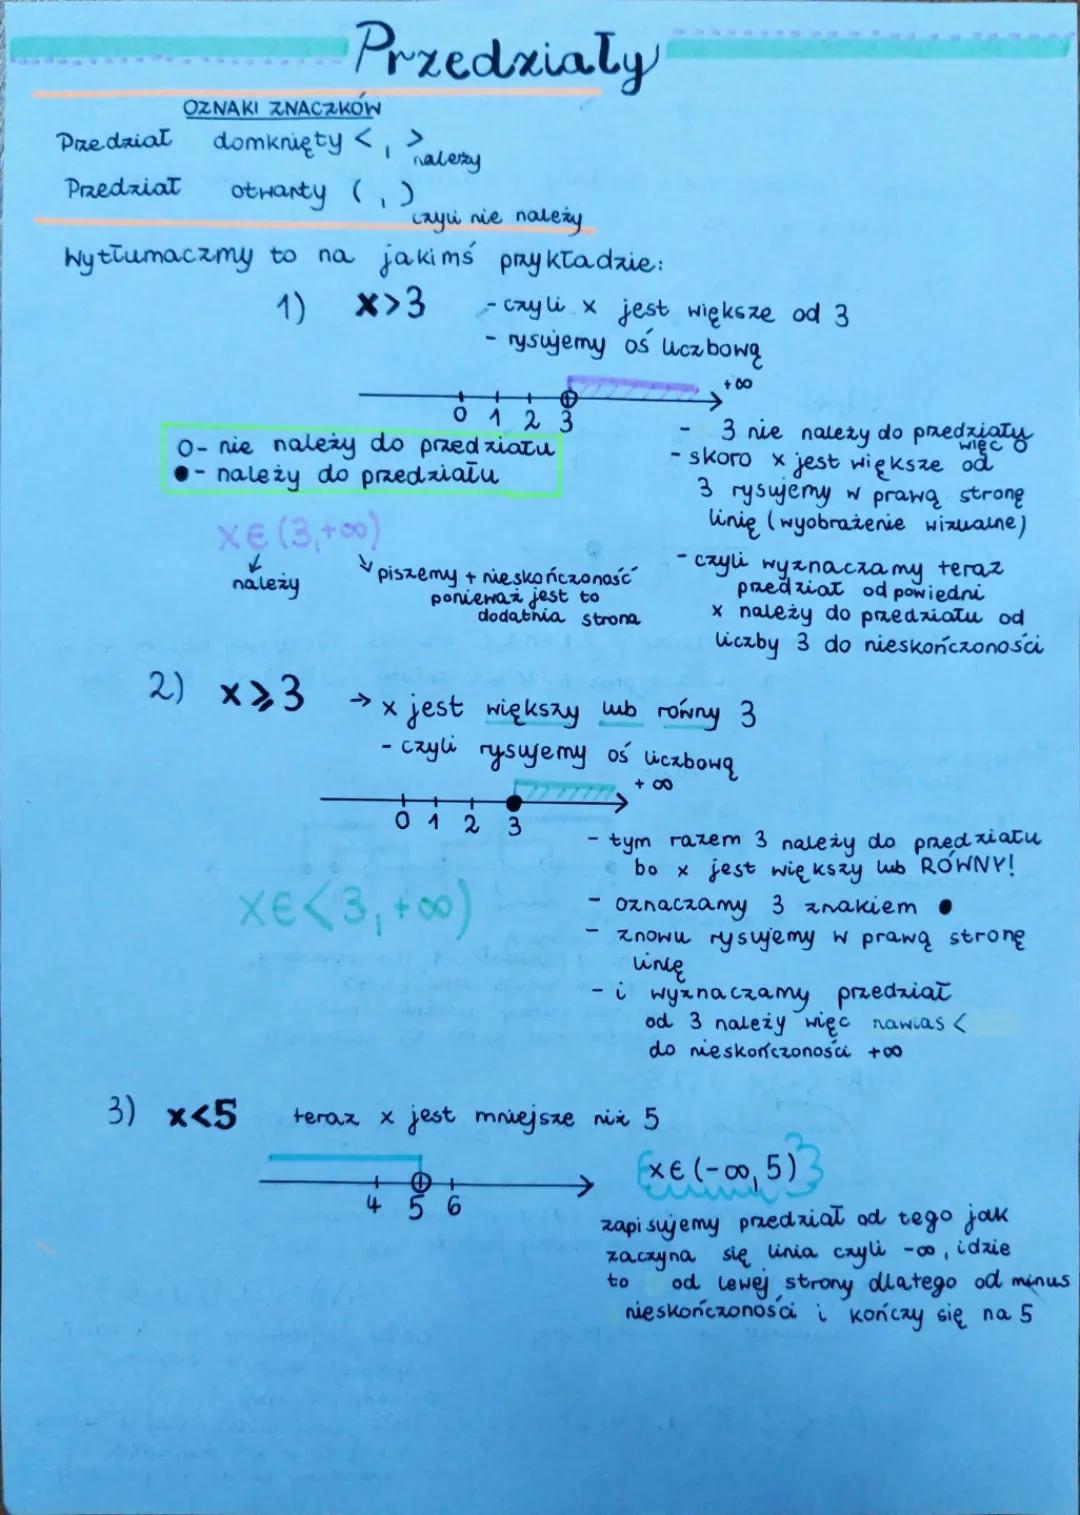 Przedziały
OZNAKI ZNACZKÓW
Przedział domknięty < , > należy
Przedział otwarty ( , ) czyli nie należy
Wytłumaczmy to na jakimś przykładzie:
1) x>3 - czyli x jest większe od 3
- rysujemy oś liczbową
+∞
0 1 2 3
O- nie należy do przedziału
●- należy do przedziału
- 3 nie należy do przedziału więc O
- skoro x jest większe od
3 rysujemy w prawą stronę
linię (wyobrażenie wizualne)
x∈(3,+∞)
należy
piszemy + nieskończoność
ponieważ jest to
dodatnia strona
- czyli wyznaczamy teraz
przedział odpowiedni
x należy do przedziału od
liczby 3 do nieskończoności
2) x⩾3 → x jest większy lub równy 3
- czyli rysujemy oś liczbową
+∞
0 1 2 3
- tym razem 3 należy do przedziału
bo x jest większy lub RÓWNY!
x∈<3,+∞)
- oznaczamy 3 znakiem ●
- znowu rysujemy w prawą stronę
linię
- i wyznaczamy przedział
od 3 należy więc nawias <
do nieskończoności +∞
3) x<5 teraz x jest mniejsze niż 5
4 5 6
x∈(-∞,5)
zapisujemy przedział od tego jak
zaczyna się linia czyli -∞, idzie
to od lewej strony dlatego od minus
nieskończoności i kończy się na 5